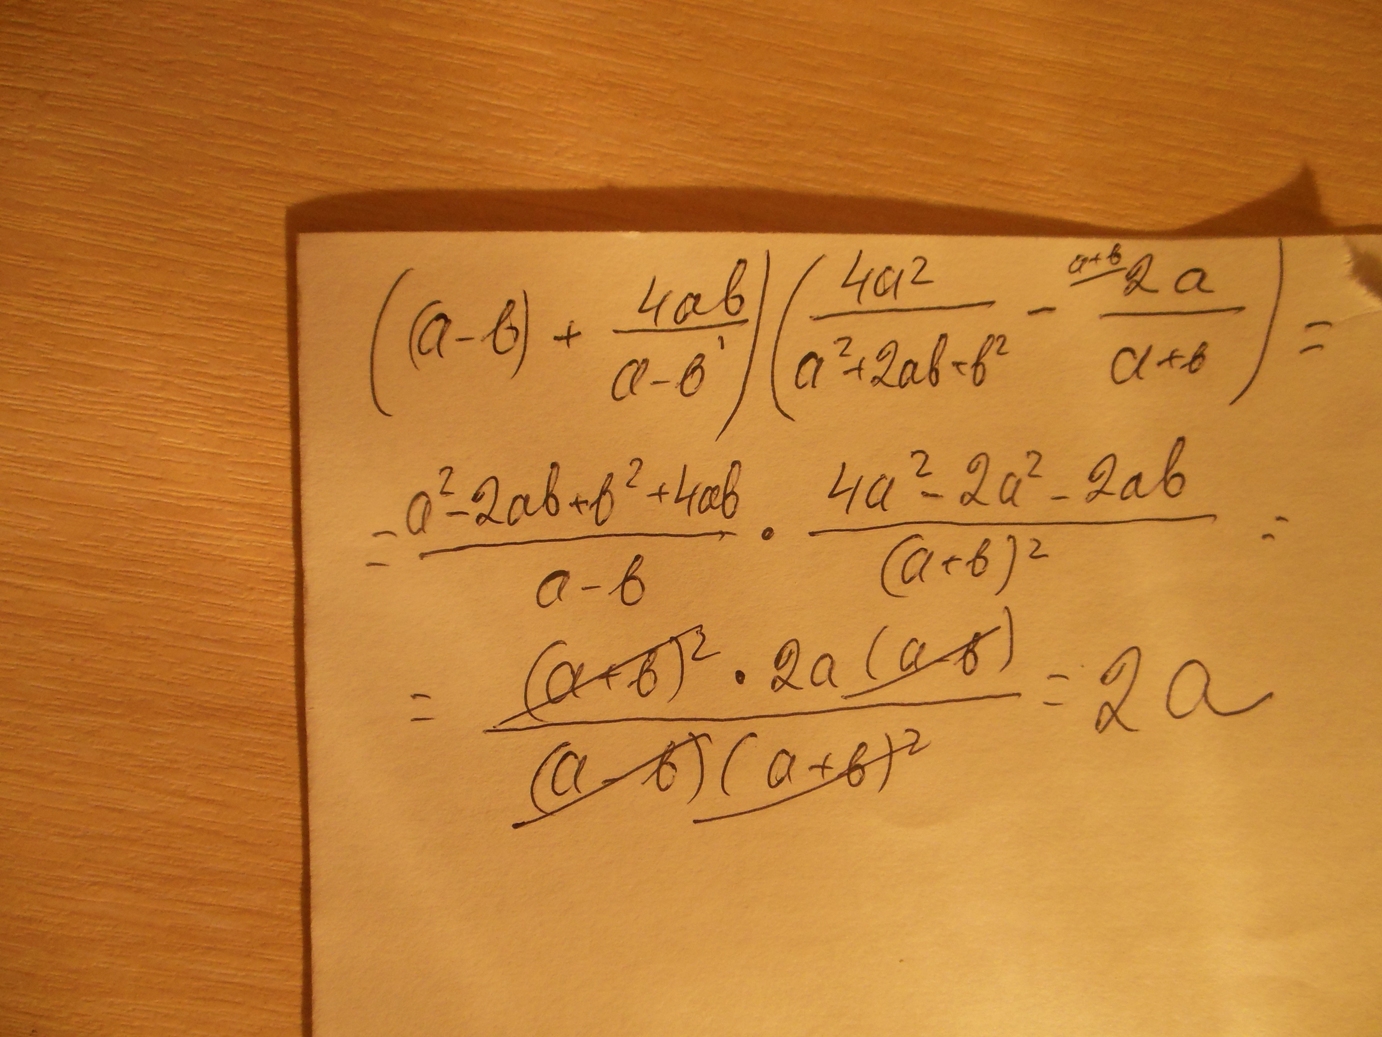 ((a-b) + 4ab/(a-b))(4a²/(a²+2ab+b²) - a+b 2a/(a+b)) =
= (a²-2ab+b²+4ab)/(a-b) · (4a²-2a²-2ab)/(a+b)² =
= ((a+b)² · 2a(a-b))/((a-b)(a+b)²) = 2a